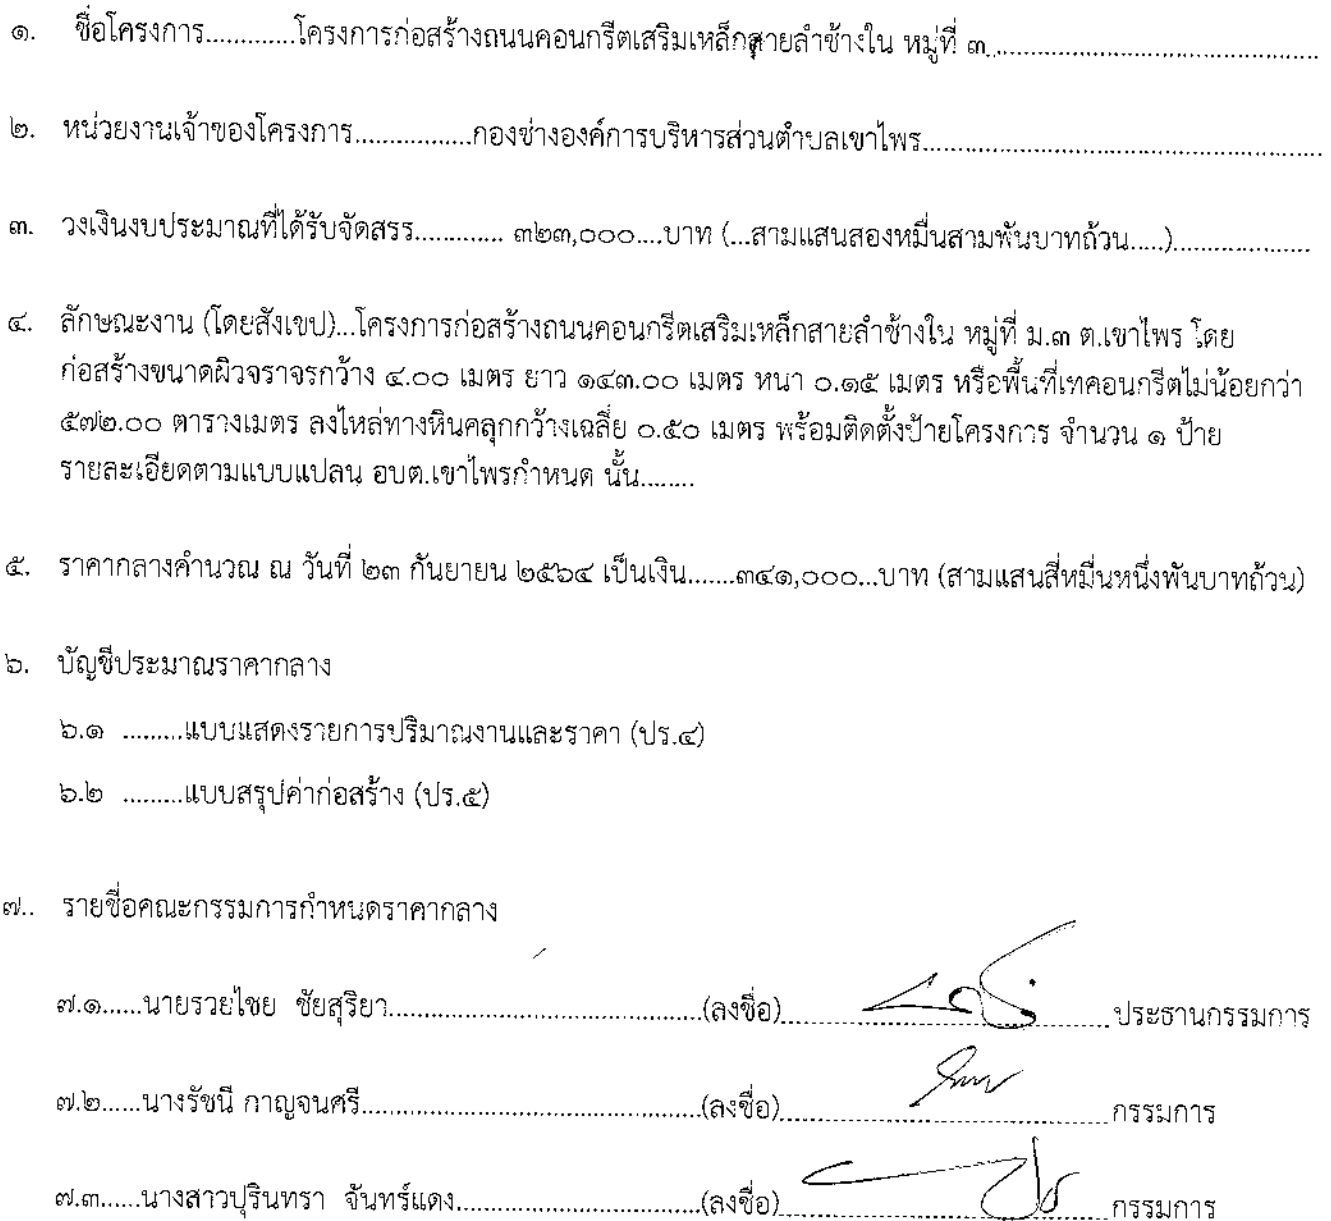 ๑. ชื่อโครงการ.............โครงการก่อสร้างถนนคอนกรีตเสริมเหล็กสายลำช้างใน หมู่ที่ ๓..............................................
๒. หน่วยงานเจ้าของโครงการ.................กองช่างองค์การบริหารส่วนตำบลเขาไพร..........................................................
๓. วงเงินงบประมาณที่ได้รับจัดสรร............. ๓๒๓,๐๐๐....บาท (...สามแสนสองหมื่นสามพันบาทถ้วน.....)....................
๔. ลักษณะงาน (โดยสังเขป)...โครงการก่อสร้างถนนคอนกรีตเสริมเหล็กสายลำช้างใน หมู่ที่ ม.๓ ต.เขาไพร โดย
ก่อสร้างขนาดผิวจราจรกว้าง ๔.๐๐ เมตร ยาว ๑๔๓.๐๐ เมตร หนา ๐.๑๕ เมตร หรือพื้นที่เทคอนกรีตไม่น้อยกว่า
๕๗๒.๐๐ ตารางเมตร ลงไหล่ทางหินคลุกกว้างเฉลี่ย ๐.๕๐ เมตร พร้อมติดตั้งป้ายโครงการ จำนวน ๑ ป้าย
รายละเอียดตามแบบแปลน อบต.เขาไพรกำหนด นั้น........
๕. ราคากลางคำนวณ ณ วันที่ ๒๓ กันยายน ๒๕๖๔ เป็นเงิน.......๓๔๑,๐๐๐...บาท (สามแสนสี่หมื่นหนึ่งพันบาทถ้วน)
๖. บัญชีประมาณราคากลาง
๖.๑ .........แบบแสดงรายการปริมาณงานและราคา (ปร.๔)
๖.๒ .........แบบสรุปค่าก่อสร้าง (ปร.๕)
๗.. รายชื่อคณะกรรมการกำหนดราคากลาง
๗.๑......นายรวยไชย ชัยสุริยา.............................................(ลงชื่อ)................................................ประธานกรรมการ
๗.๒......นางรัชนี กาญจนศรี.................................................(ลงชื่อ)................................................กรรมการ
๗.๓......นางสาวปุรินทรา จันทร์แดง...................................(ลงชื่อ)................................................กรรมการ